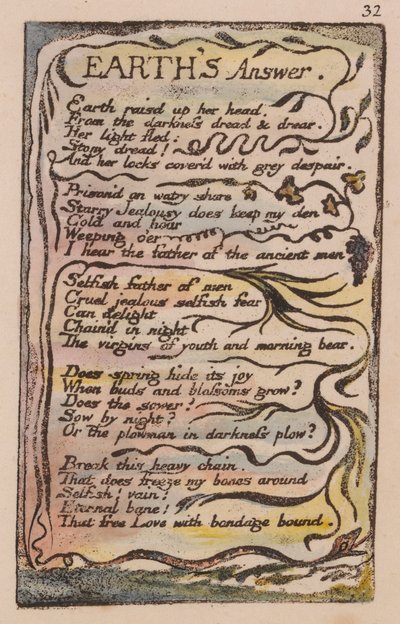 32
EARTH'S Answer.
Earth raisd up her head.
From the darkness dread & drear.
Her light fled:
Stony dread!
And her locks cover'd with grey despair.
Prison'd on watry shore
Starry Jealousy does keep my den
Cold and hoar
Weeping o'er
I hear the father of the ancient men
Selfish father of men
Cruel jealous selfish fear
Can delight
Chain'd in night
The virgins of youth and morning bear.
Does spring hide its joy
When buds and blossoms grow?
Does the sower?
Sow by night?
Or the plowman in darkness plow?
Break this heavy chain
That does freeze my bones around
Selfish! vain!
Eternal bane!
That free Love with bondage bound.